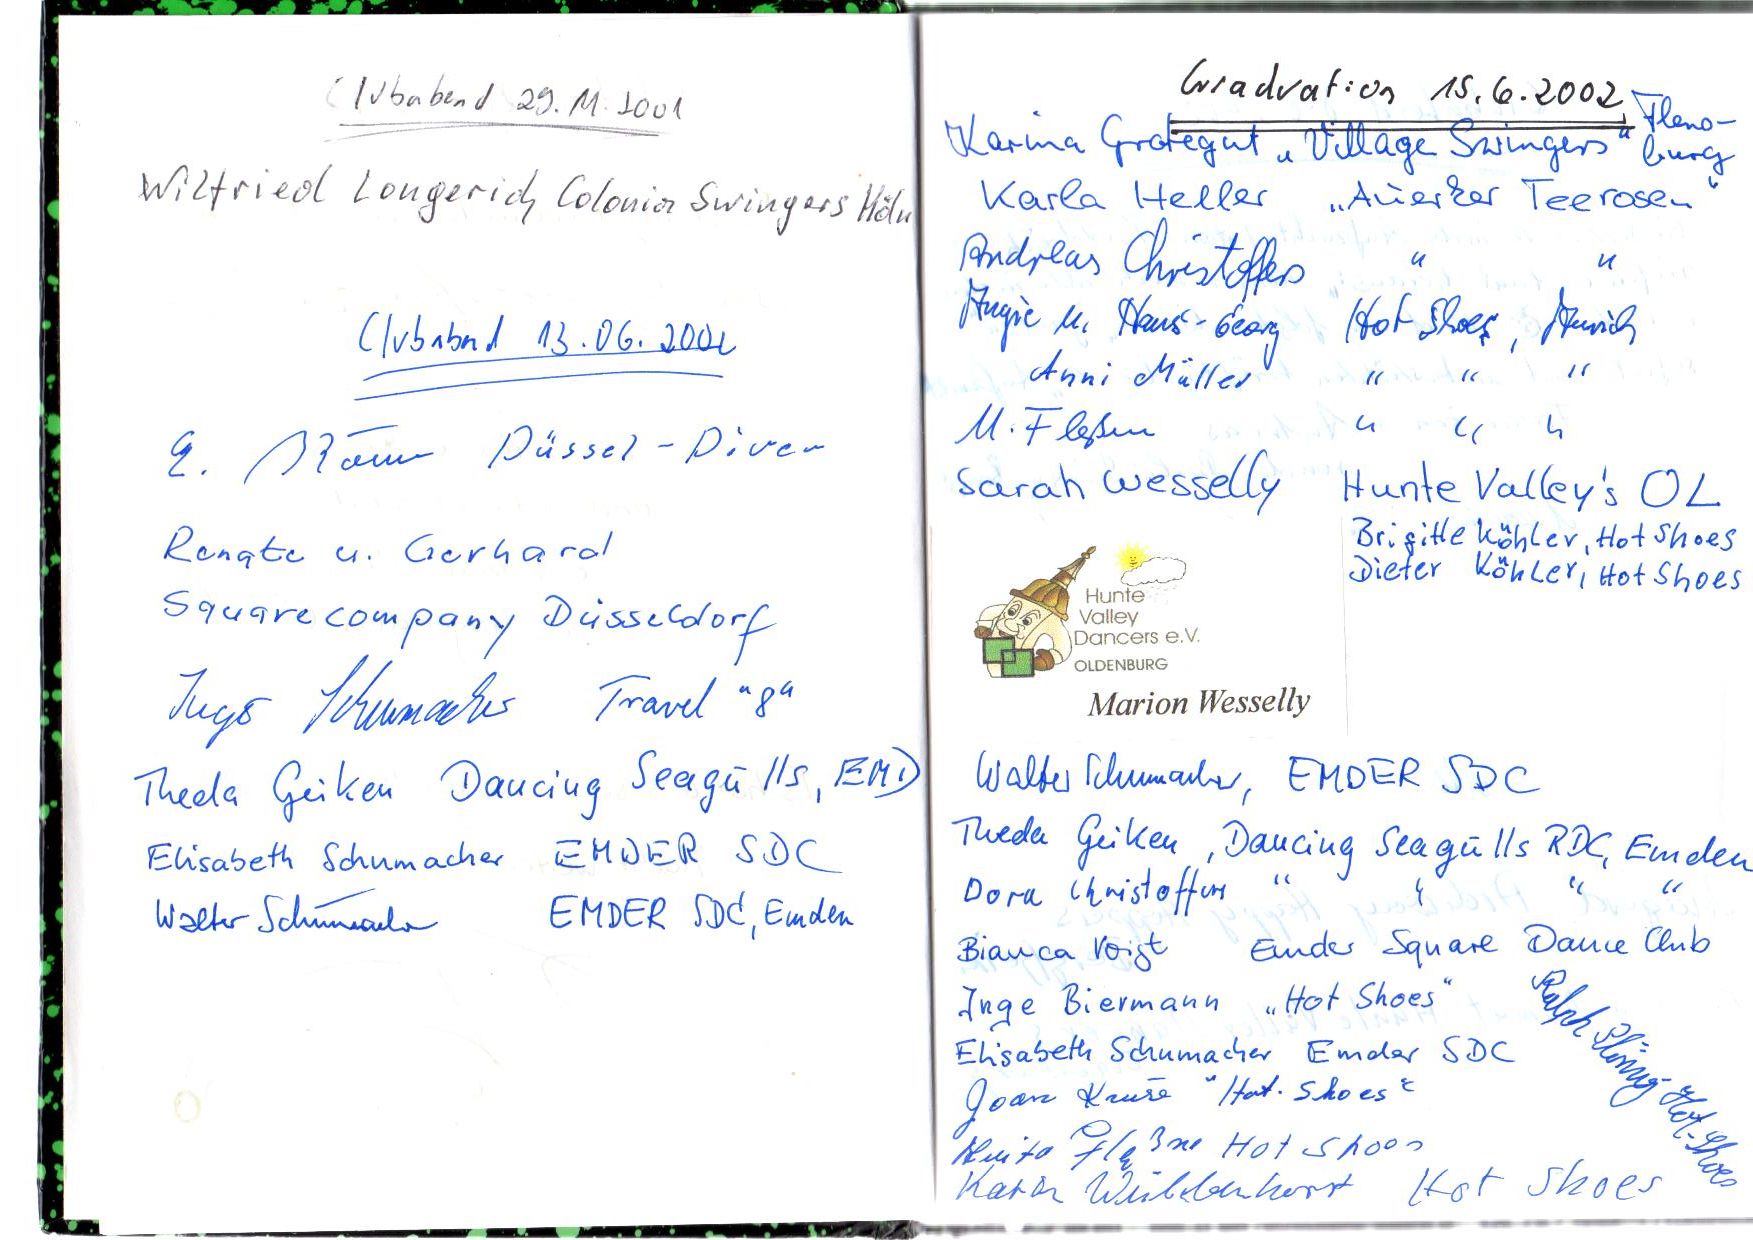 Clubabend 29.11.2001
Wilfried Longerich Colonia Swingers Köln
Clubabend 13.06.2002
Düssel-Diver
Renate u. Gerhard
Squarecompany Düsseldorf
Ingo Schumacher Travel "8"
Theda Geiken Dancing Seagulls, EMD
Elisabeth Schumacher EMDER SDC
Walter Schumacher EMDER SDC, Emden
Graduation 15.6.2002
Karina Grotegut „Village Swingers" Flensburg
Karla Heller „Auerker Teerosen"
Andreas Christoffers " "
Angie u. Hans-Georg Hot Shoes, Aurich
Anni Müller " " "
M. Fleßner " " "
Sarah Wesselly Hunte Valley's OL
Brigitte Köhler, Hot Shoes
Dieter Köhler, Hot Shoes
Hunte
Valley
Dancers e.V.
OLDENBURG
Marion Wesselly
Walter Schumacher, EMDER SDC
Theda Geiken, Dancing Seagulls RDC, Emden
Dora Christoffers " " " "
Bianca Voigt Emder Square Dance Club
Inge Biermann „Hot Shoes"
Elisabeth Schumacher Emder SDC
Kruse "Hot. Shoes"
Hot Shoes
Karin Hot Shoes
Ralph Hot-Shoes